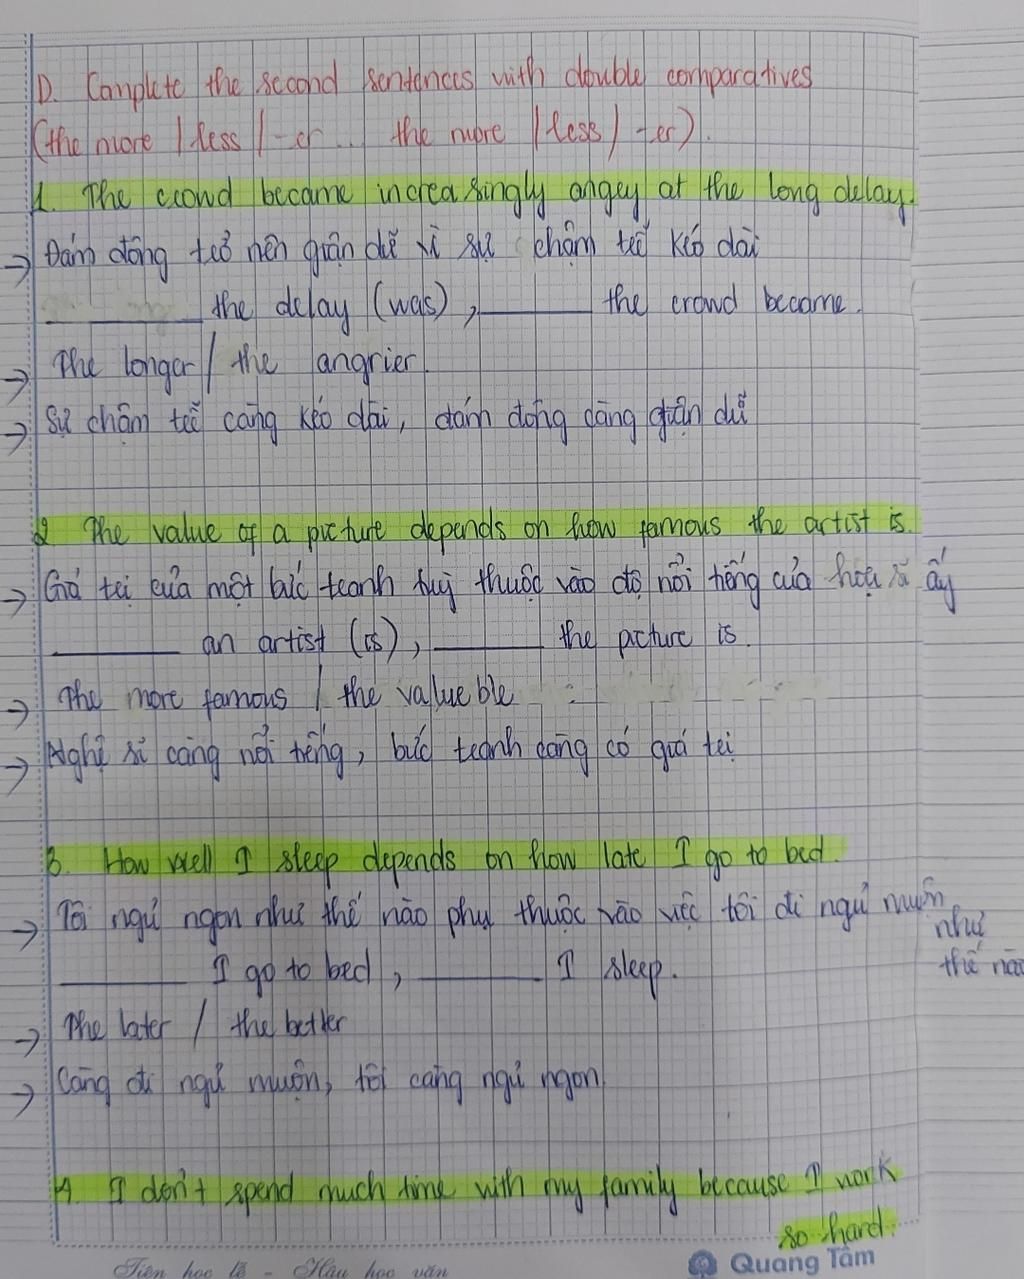 D. Complete the second sentences with double comparatives
(the more / less / -er ... the more / less / -er).
1. The crowd became increasingly angry at the long delay.
→ Đám đông trở nên giận dữ vì sự chậm trễ kéo dài
________ the delay (was), ________ the crowd became.
→ The longer / the angrier
→ Sự chậm trễ càng kéo dài, đám đông càng giận dữ
2 The value of a picture depends on how famous the artist is.
→ Giá trị của một bức tranh tuỳ thuộc vào độ nổi tiếng của hoạ sĩ ấy
________ an artist (is), ________ the picture is.
→ The more famous / the valueble
→ Nghệ sĩ càng nổi tiếng, bức tranh càng có giá trị
3. How well I sleep depends on how late I go to bed.
→ Tôi ngủ ngon như thế nào phụ thuộc vào việc tôi đi ngủ muộn
như
thế nào
________ I go to bed, ________ I sleep.
→ The later / the better
→ Càng đi ngủ muộn, tôi càng ngủ ngon
4. I don't spend much time with my family because I work
so hard.
Tiên học lễ - Hậu học văn
Quang Tâm